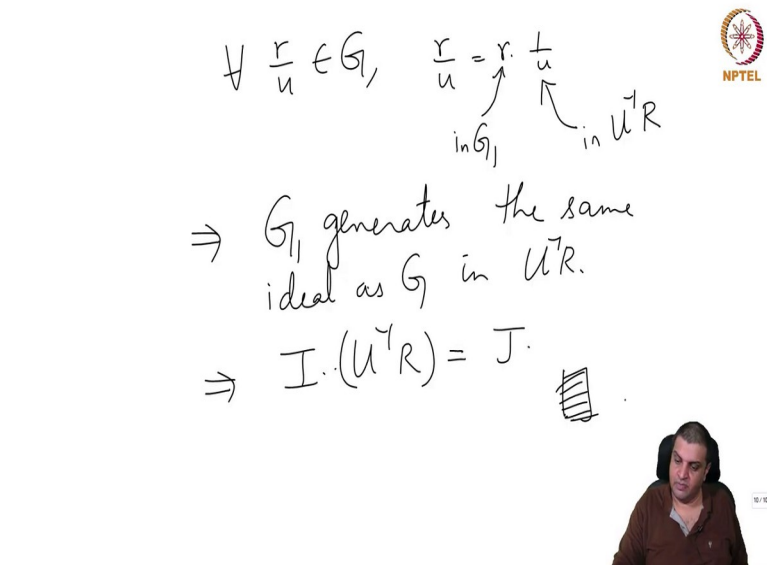 ∀ r/u ∈ G, r/u = r. 1/u
in G₁
in U⁻¹R
⇒ G₁ generates the same
ideal as G in U⁻¹R.
⇒ I.(U⁻¹R) = J.
NPTEL
10 / 10